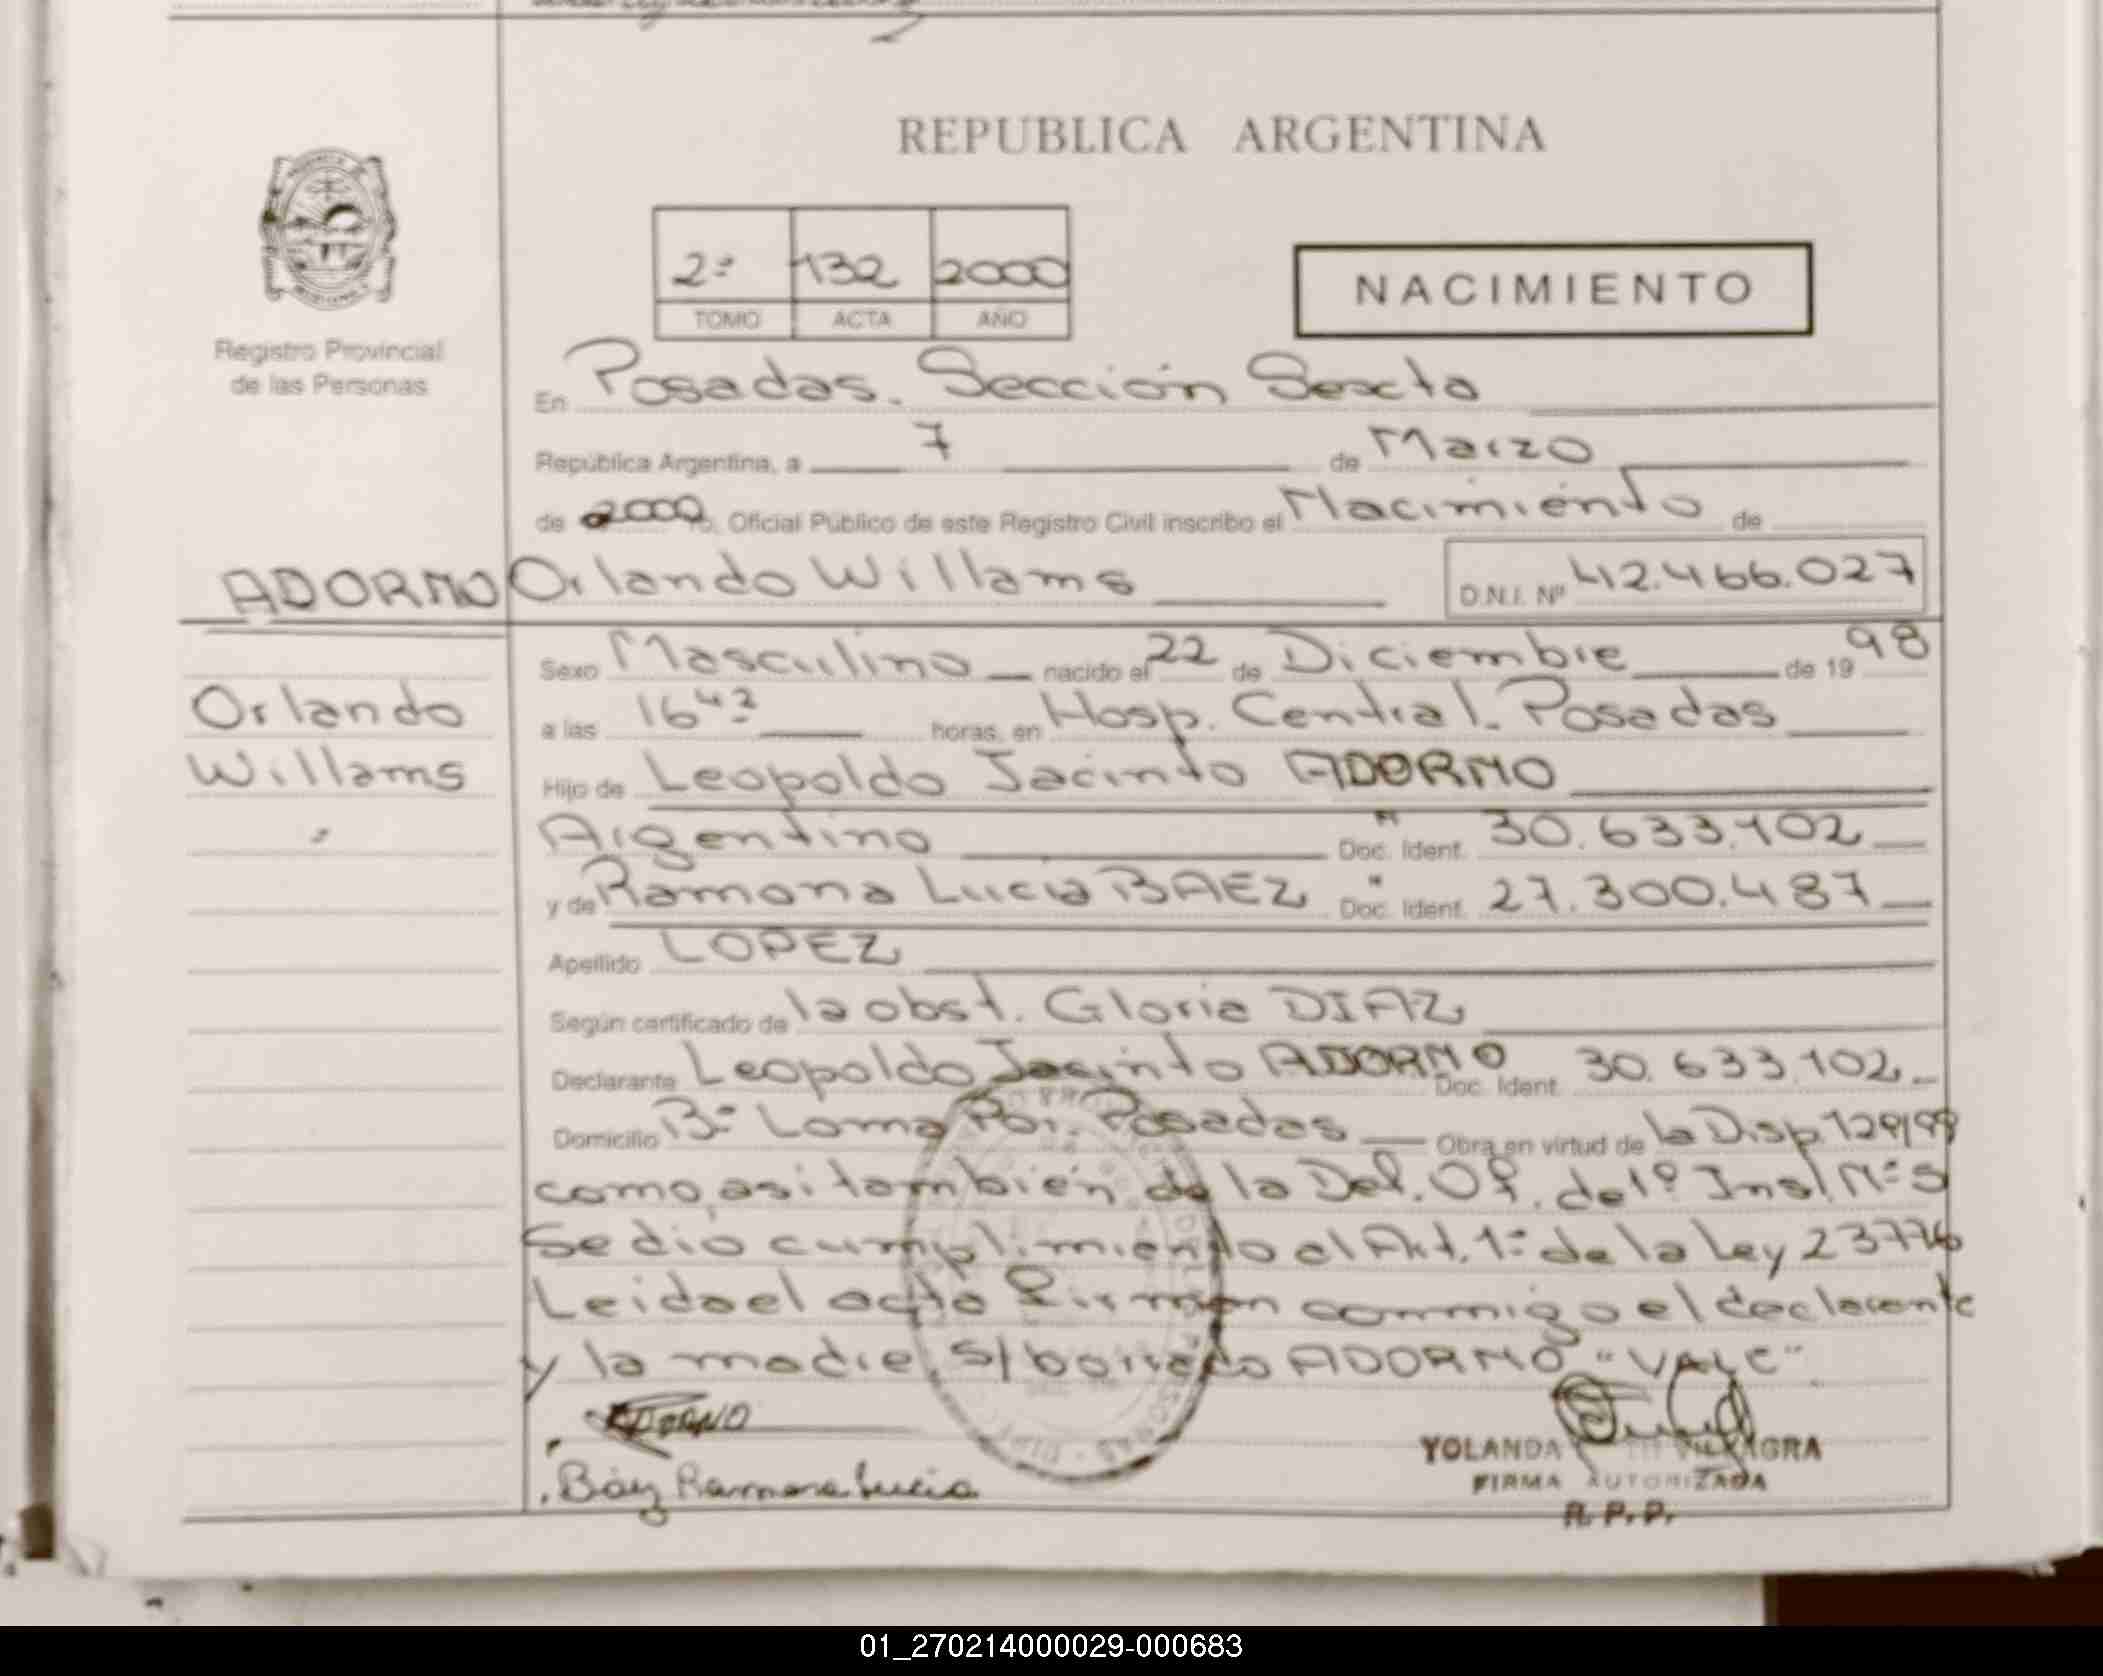 REPUBLICA ARGENTINA
2º 132 2000
TOMO ACTA AÑO
NACIMIENTO
Registro Provincial
de las Personas
En Posadas. Sección Sexta
República Argentina, a 7 de Marzo
de 2000 yo, Oficial Público de este Registro Civil inscribo el Nacimiento de
ADORNO Orlando Willams D.N.I. Nº 42.466.027
Orlando
Willams
Sexo Masculino nacido el 22 de Diciembre de 19 98
a las 16 43 horas, en Hosp. Central. Posadas
Hijo de Leopoldo Jacinto ADORNO
Argentino Doc. Ident. 30.633.102
y de Ramona Lucia BAEZ Doc. Ident. 27.300.487
Apellido LOPEZ
Según certificado de la obst. Gloria DIAZ
Declarante Leopoldo Jacinto ADORNO Doc. Ident. 30.633.102
Domicilio Bº Loma Poi. Posadas Obra en virtud de la Disp. 129/99
como asi también de la Def. Of. de 1º Inst Nº 5
Se dió cumplimiento al Art. 1º de la Ley 23776
Leida el acta firman conmigo el declarante
y la madre. S/borrado ADORNO "VALE"
ADORNO
Báez Ramona Lucia
YOLANDA VILLAGRA
FIRMA AUTORIZADA
R. P. P.
01_270214000029-000683